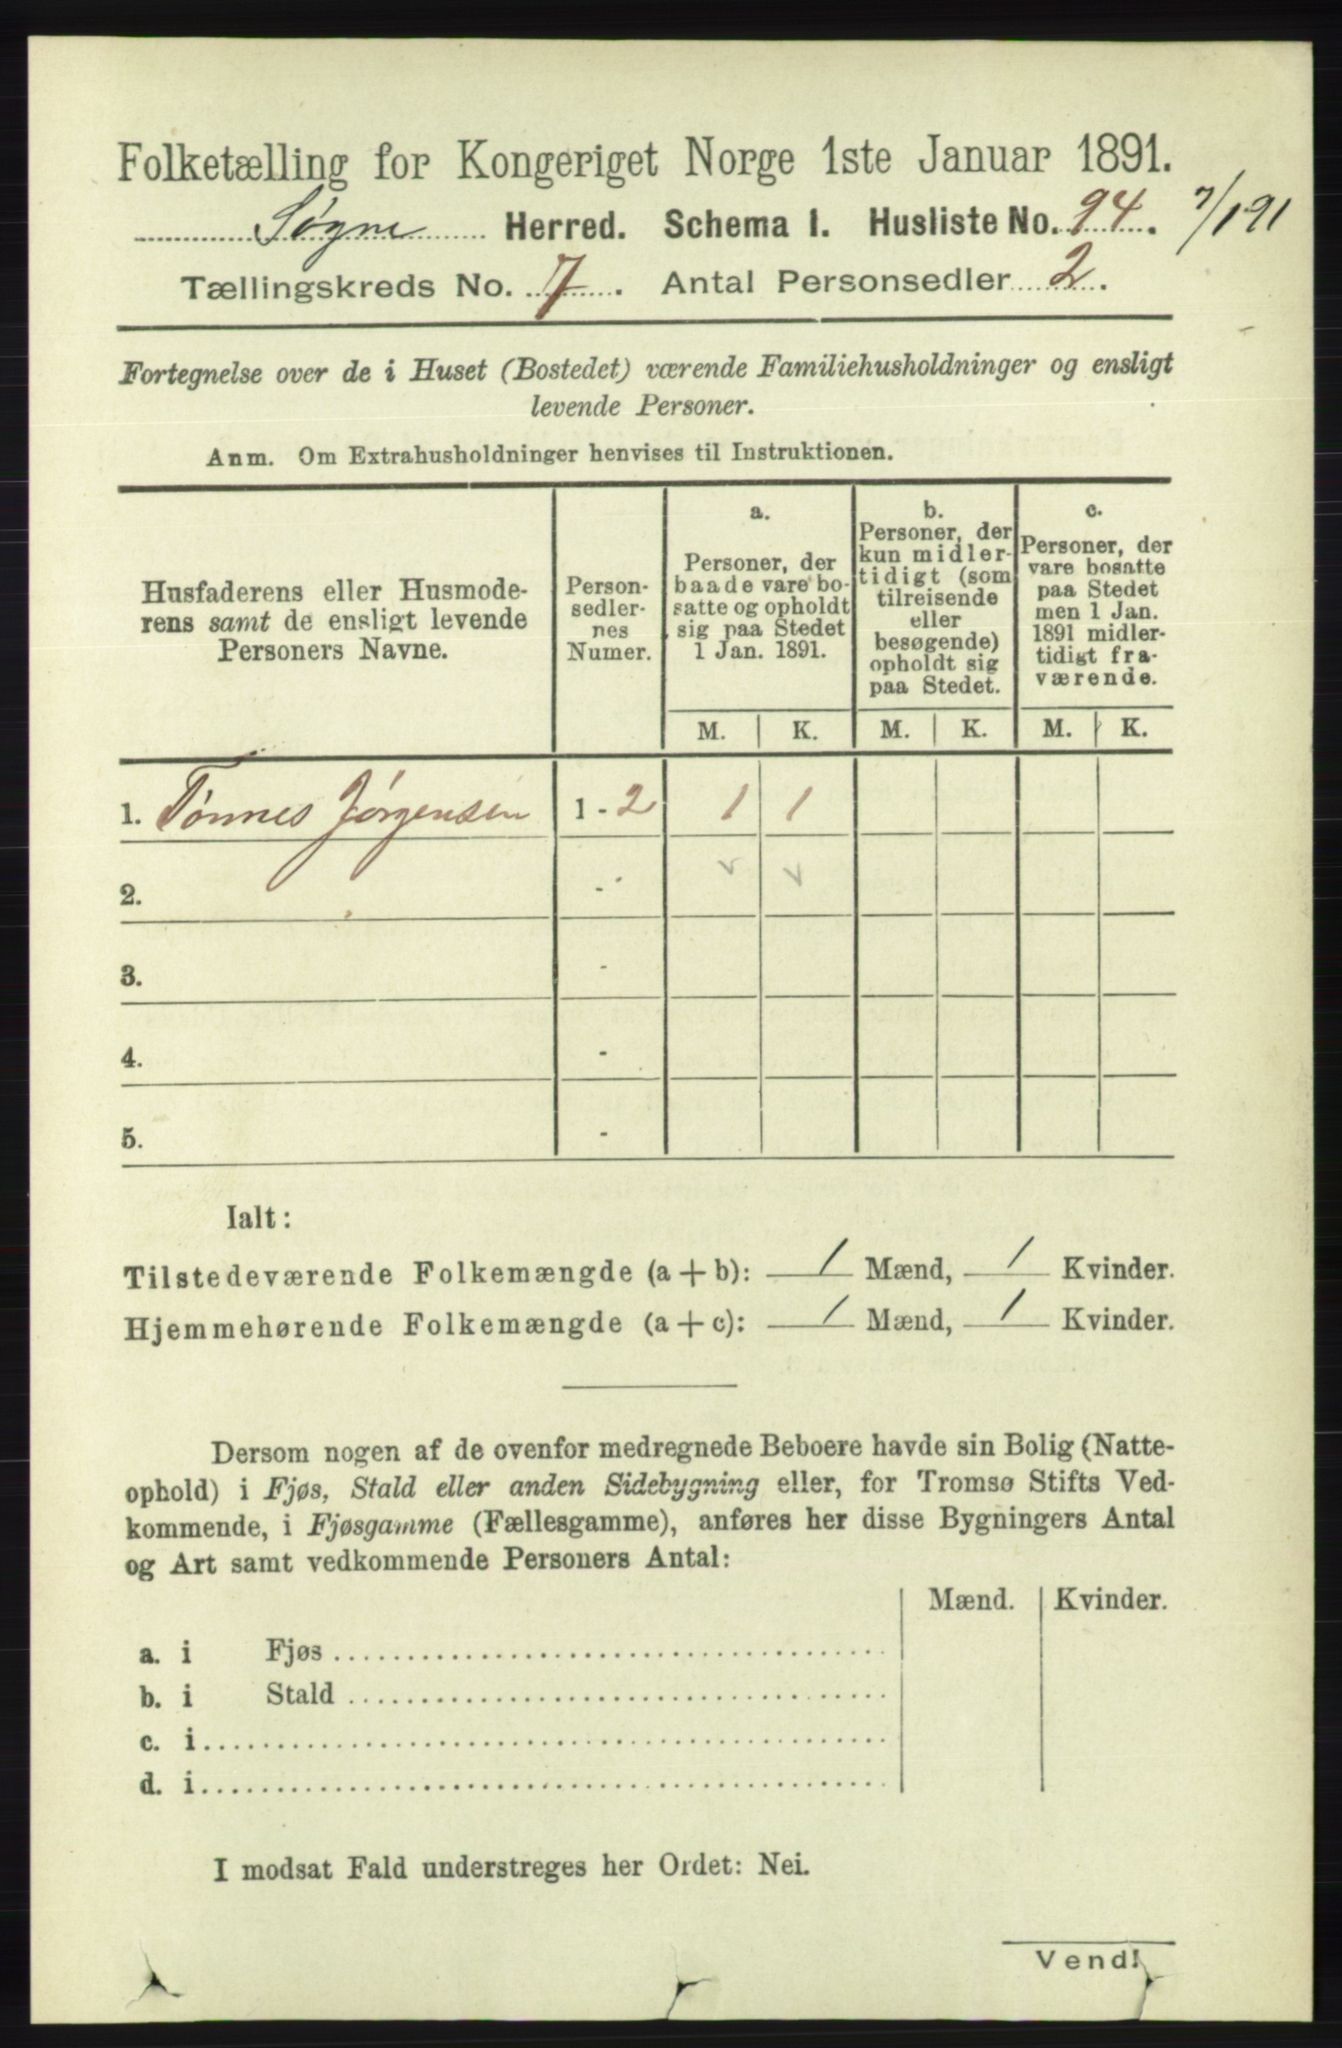 Folketælling for Kongeriget Norge 1ste Januar 1891.
Søgne Herred. Schema 1. Husliste No. 94. 7/191
Tællingskreds No. 7. Antal Personsedler 2.
Fortegnelse over de i Huset (Bostedet) værende Familiehusholdninger og ensligt
levende Personer.
Anm. Om Extrahusholdninger henvises til Instruktionen.
Husfaderens eller Husmode-
rens samt de ensligt levende
Personers Navne.
Person-
sedler-
nes
Numer.
a.
Personer, der
baade vare bo-
satte og opholdt
sig paa Stedet
1 Jan. 1891.
b.
Personer, der
kun midler-
tidigt (som
tilreisende
eller
besøgende)
opholdt sig
paa Stedet.
c.
Personer, der
vare bosatte
paa Stedet
men 1 Jan.
1891 midler-
tidigt fra-
værende.
M. K. M. K. M. K.
1. Tønnes Jørgensen 1 - 2 1 1
2. -
3. -
4. -
5. -
Ialt:
Tilstedeværende Folkemængde (a + b): 1 Mænd, 1 Kvinder.
Hjemmehørende Folkemængde (a + c): 1 Mænd, 1 Kvinder.
Dersom nogen af de ovenfor medregnede Beboere havde sin Bolig (Natte-
ophold) i Fjøs, Stald eller anden Sidebygning eller, for Tromsø Stifts Ved-
kommende, i Fjøsgamme (Fællesgamme), anføres her disse Bygningers Antal
og Art samt vedkommende Personers Antal:
Mænd. Kvinder.
a. i Fjøs
b. i Stald
c. i
d. i
I modsat Fald understreges her Ordet: Nei.
Vend!